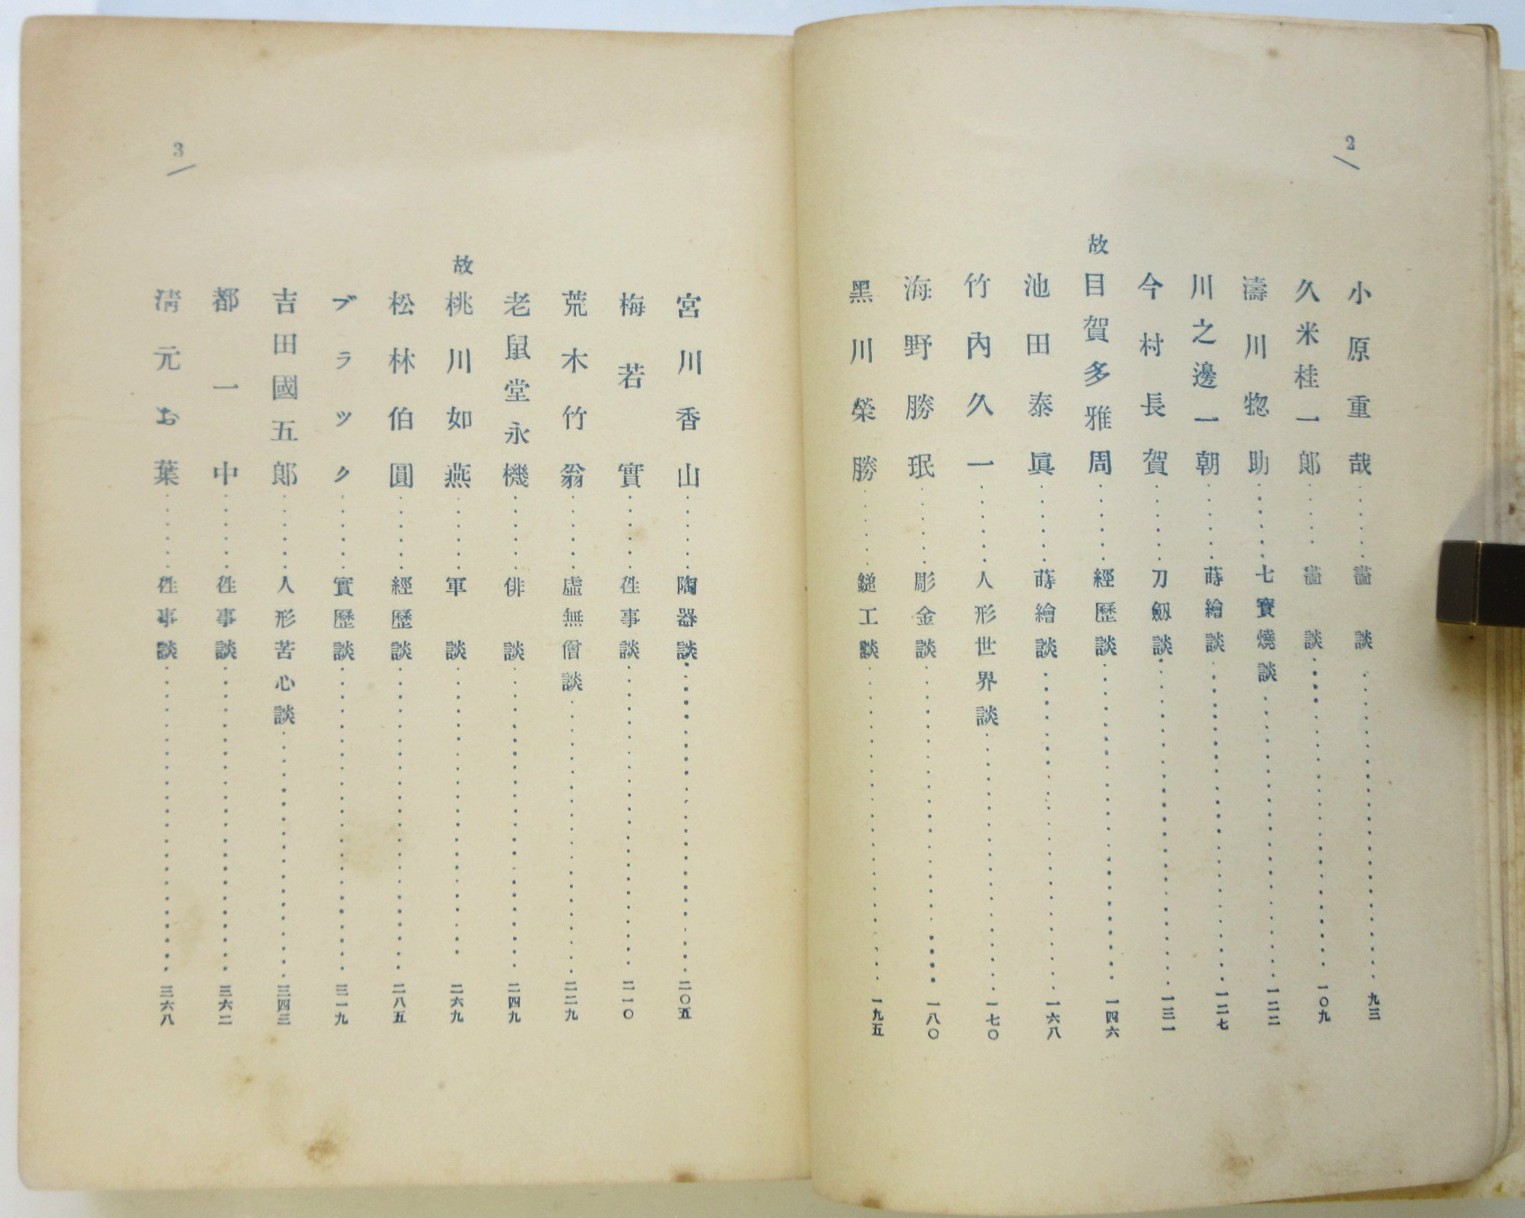 2
小原重哉……畵談……九三
久米桂一郎……畵談……一〇九
濤川惣助……七寶燒談……一二二
川之邊一朝……蒔繪談……一二七
今村長賀……刀劔談……一三一
故目賀多雅周……經歷談……一四六
池田泰眞……蒔繪談……一六八
竹內久一……人形世界談……一七〇
海野勝珉……彫金談……一八〇
黑川榮勝……鎚工談……一九五
3
宮川香山……陶器談……二〇五
梅若實……徃事談……二一〇
荒木竹翁……虛無僧談……二二九
老鼠堂永機……俳談……二四九
故桃川如燕……軍談……二六九
松林伯圓……經歷談……二八五
ブラック……實歷談……三一九
吉田國五郞……人形苦心談……三四三
都一中……徃事談……三六二
淸元お葉……徃事談……三六八